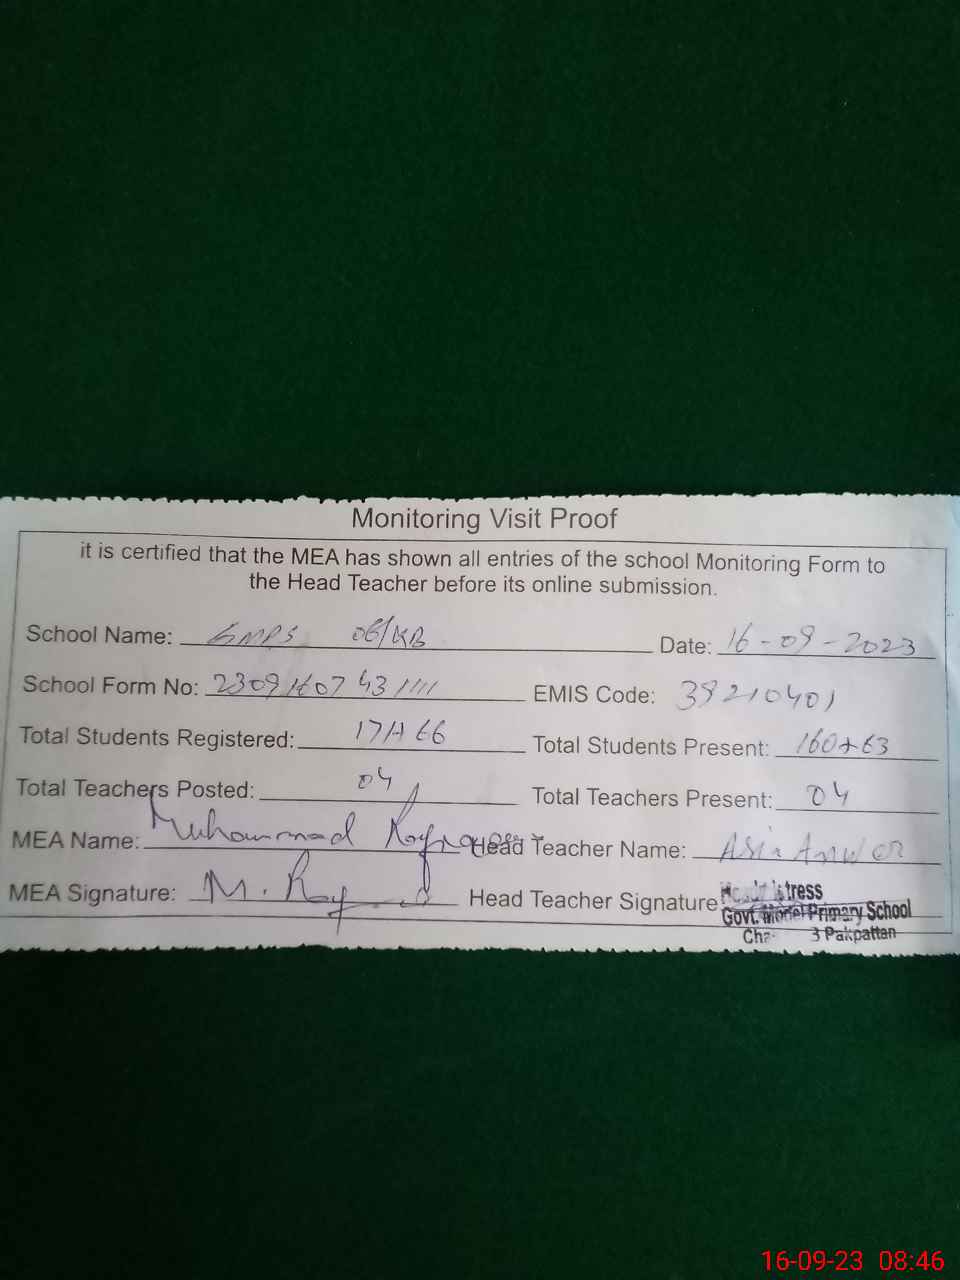 Monitoring Visit Proof
it is certified that the MEA has shown all entries of the school Monitoring Form to
the Head Teacher before its online submission.
School Name: GMPS 06/KB Date: 16-09-2023
School Form No: 2309160743 EMIS Code: 39210401
Total Students Registered: 171+66 Total Students Present: 160+63
Total Teachers Posted: 04 Total Teachers Present: 04
MEA Name: Muhammad Head Teacher Name: Asia Anwer
MEA Signature: M. Head Teacher Signature
Govt. Model Primary School
3 Pakpattan
16-09-23 08:46